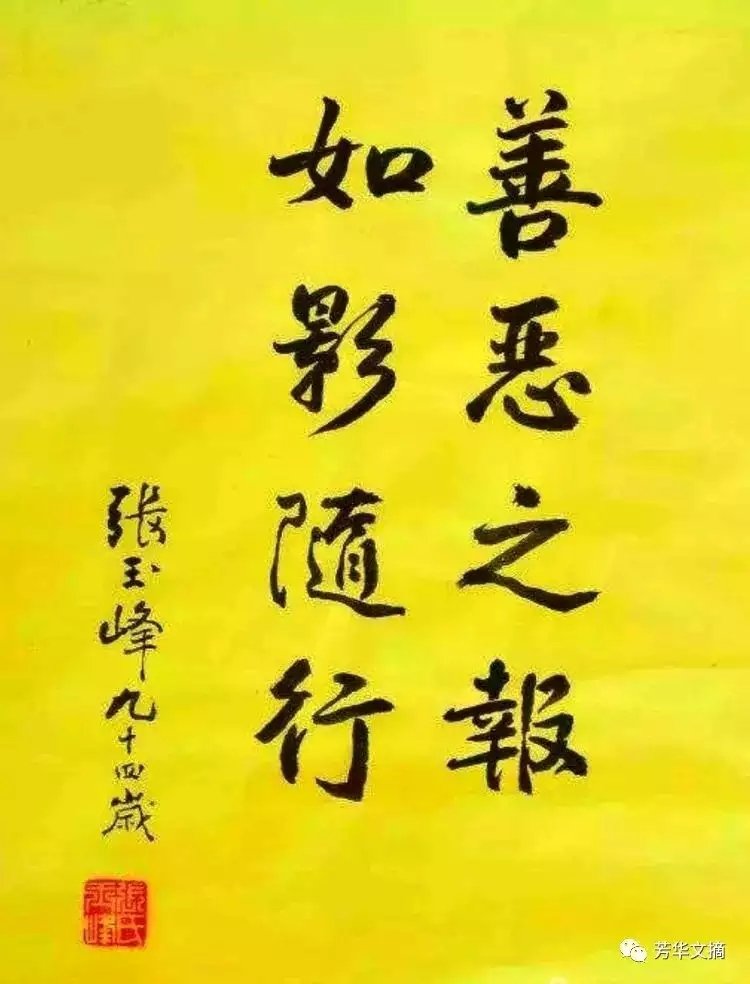 善惡之報
如影隨行
張玉峰九十四歲
張氏玉峰
芳华文摘